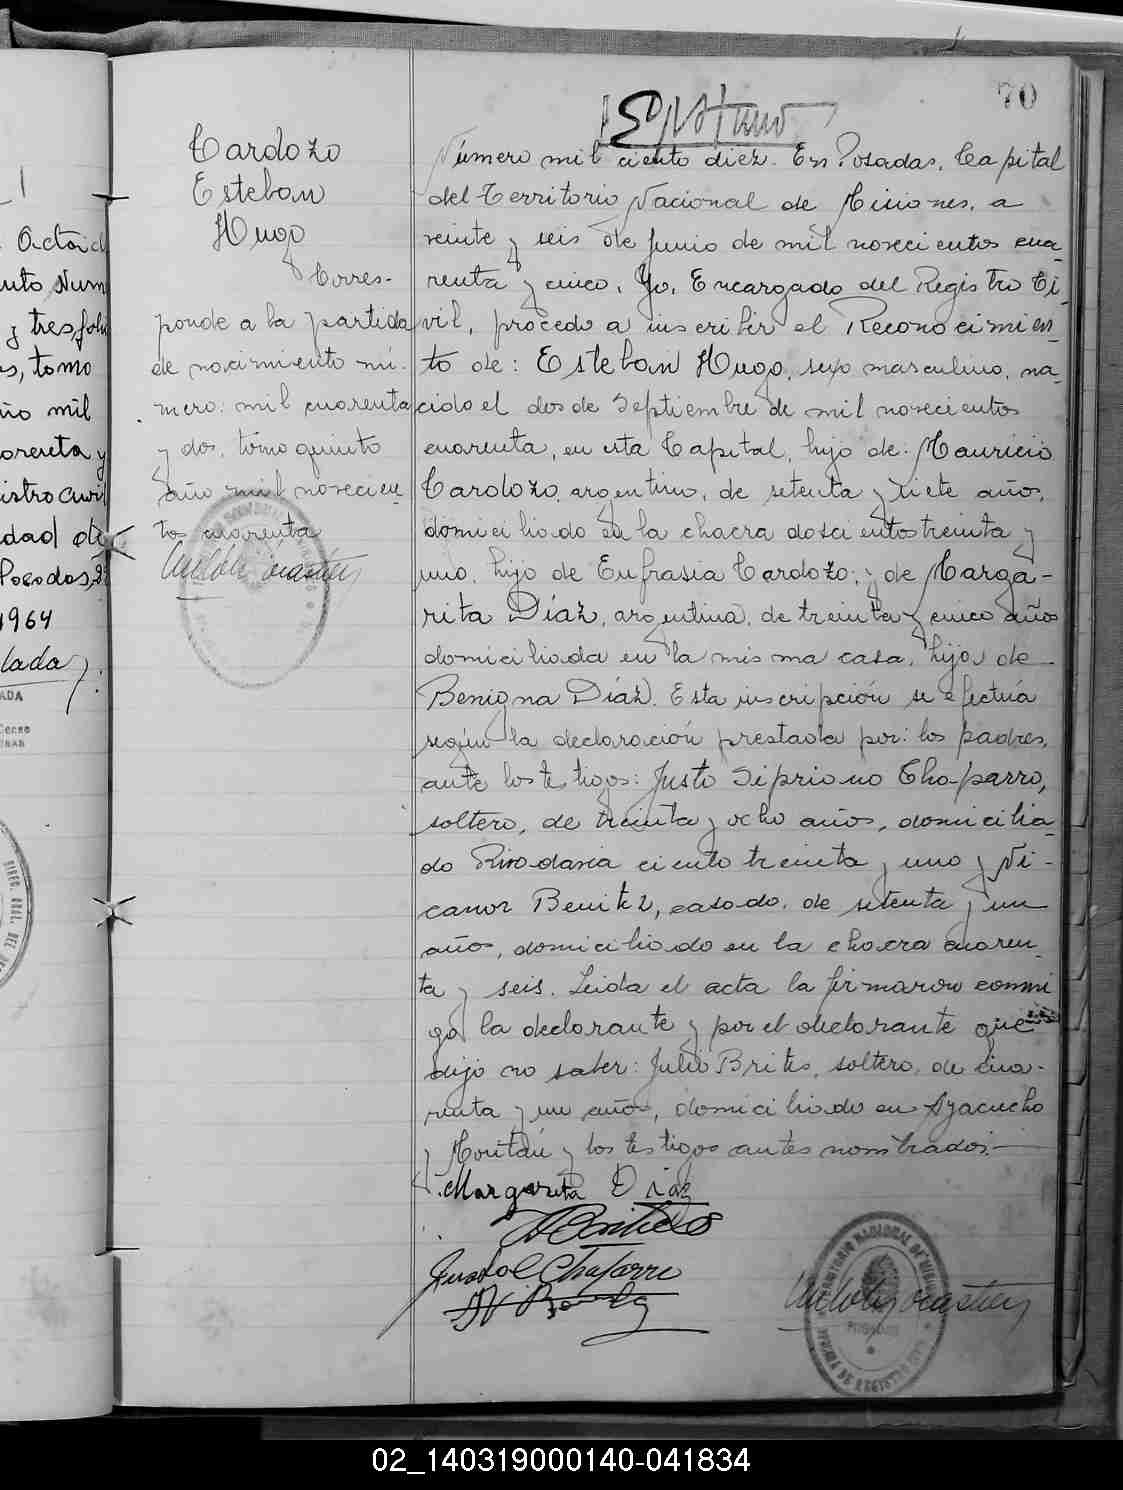 70
Cardozo
Esteban
Hugo
Corres-
ponde a la partida
de nacimiento nú-
mero: mil cuarenta
y dos, tomo quinto
año mil novecien-
tos cuarenta
Número mil ciento diez. En Posadas, Capital
del Territorio Nacional de Misiones, a
veinte y seis de Junio de mil novecientos cua-
renta y cinco, Yo, Encargado del Registro Ci-
vil, procedo a inscribir el Reconocimien-
to de: Esteban Hugo, sexo masculino, na-
cido el dos de Septiembre de mil novecientos
cuarenta, en esta Capital, hijo de: Mauricio
Cardozo, argentino, de setenta y siete años,
domiciliado en la chacra doscientos treinta y
uno, hijo de Eufrasia Cardozo; y de Marga-
rita Díaz, argentina, de treinta y cinco años
domiciliada en la misma casa, hija de
Benigna Díaz. Esta inscripción se efectúa
según la declaración prestada por: los padres,
ante los testigos: Justo Sipriano Chaparro,
soltero, de treinta y ocho años, domicilia-
do Rivadavia ciento treinta y uno y Ni-
canor Benitez, casado, de setenta y un
años, domiciliado en la chacra cuaren-
ta y seis. Leida el acta la firmaron conmi
go la declarante y por el declarante que
dijo no saber: Julio Brites, soltero, de cua-
renta y un años, domiciliado en Ayacucho
y los testigos antes nombrados.-
Margarita Diaz
Justo C Chaparro
Actoid
nto Num
y tres, foli
s, tomo
ño mil
arenta y
istro Civil
dad de
Posadas, 2
1964
lada
ADA
TERRITORIO NACIONAL DE MISIONES
POSADAS
02_140319000140-041834